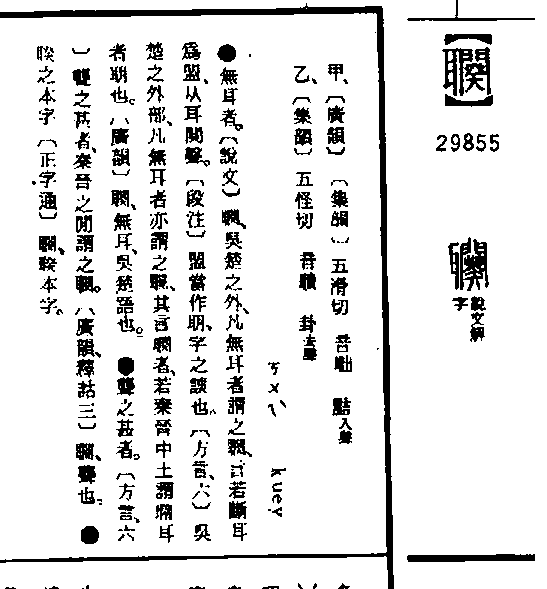 【𦘏】
29855
𦘏 說文解字
甲、〔廣韻〕〔集韻〕五滑切 音聉 黠入聲
乙、〔集韻〕五怪切 音聵 卦去聲
ㄎㄨㄟˊ kuey
●無耳者。〔說文〕𦘏、吳楚之外、凡無耳者謂之𦘏、言若斷耳
爲盟、从耳闋聲。〔段注〕盟當作䎳、字之誤也。〔方言、六〕吳
楚之外郊、凡無耳者亦謂之𦘏、其言𦘏者、若秦晉中土謂墮耳
者䎳也。〔廣韻〕𦘏、無耳、吳楚語也。●聾之甚者。〔方言、六
〕聾之甚者、秦晉之閒謂之𦘏。〔廣韻、釋詁三〕𦘏、聾也。●
聧之本字〔正字通〕𦘏、聧本字。